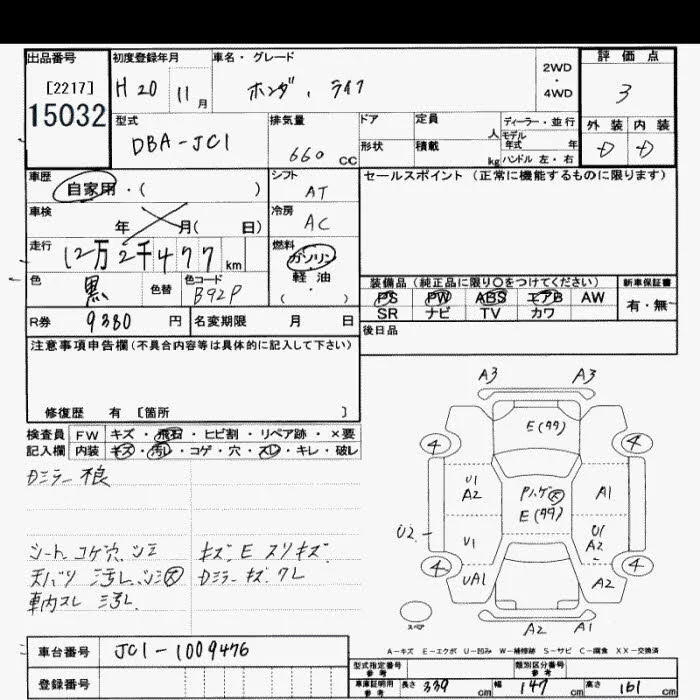 出品番号 初度登録年月 車名・グレード 評価点
[2217] H 20 11月 ホンダ、ライフ 2WD・4WD 3
15032 型式 排気量 ドア 定員 人 ディーラー・並行 外装 内装
DBA-JC1 660 CC 形状 積載 kg モデル年式 年 D D
ハンドル 左・右
車歴 自家用・( ) シフト AT セールスポイント(正常に機能するものに限ります)
車検 年 月( 日) 冷房 AC
走行 12万2千477km 燃料 ガソリン
色 黒 色替 色コード B92P 軽・油 ( ・ )
装備品(純正品に限り○をつけてください) 新車保証書
PS PW ABS エアB AW 有・無
SR ナビ TV カワ
R券 9380円 名変期限 月 日 後日品
注意事項申告欄(不具合内容等は具体的に記入して下さい)
修復歴 有 [箇所 ]
検査員 FW キズ・飛石・ヒビ割・リペア跡・×要
記入欄 内装 キズ・汚れ・コゲ・穴・スレ・キレ・破レ
Dミラー 根
シート コゲ穴 シミ キズ.E スリキズ
天バリ 汚レ シミ大 Dミラー キズ ワレ
車内スレ 汚レ
A3 A3
E(タタ)
4 4
U1
A2 Pハゲ大 A1
E(タタ)
U2 U1 U1
A2
4 UA1 A2 4
スペア A2 A1
A-キズ E-エクボ U-凹み W-補修跡 S-サビ C-腐食 XX-交換済
車台番号 JC1-1009476
登録番号
型式指定番号 参考 類別区分番号 参考
車庫証明用 参考 長さ 339cm 幅 147cm 高さ 161cm